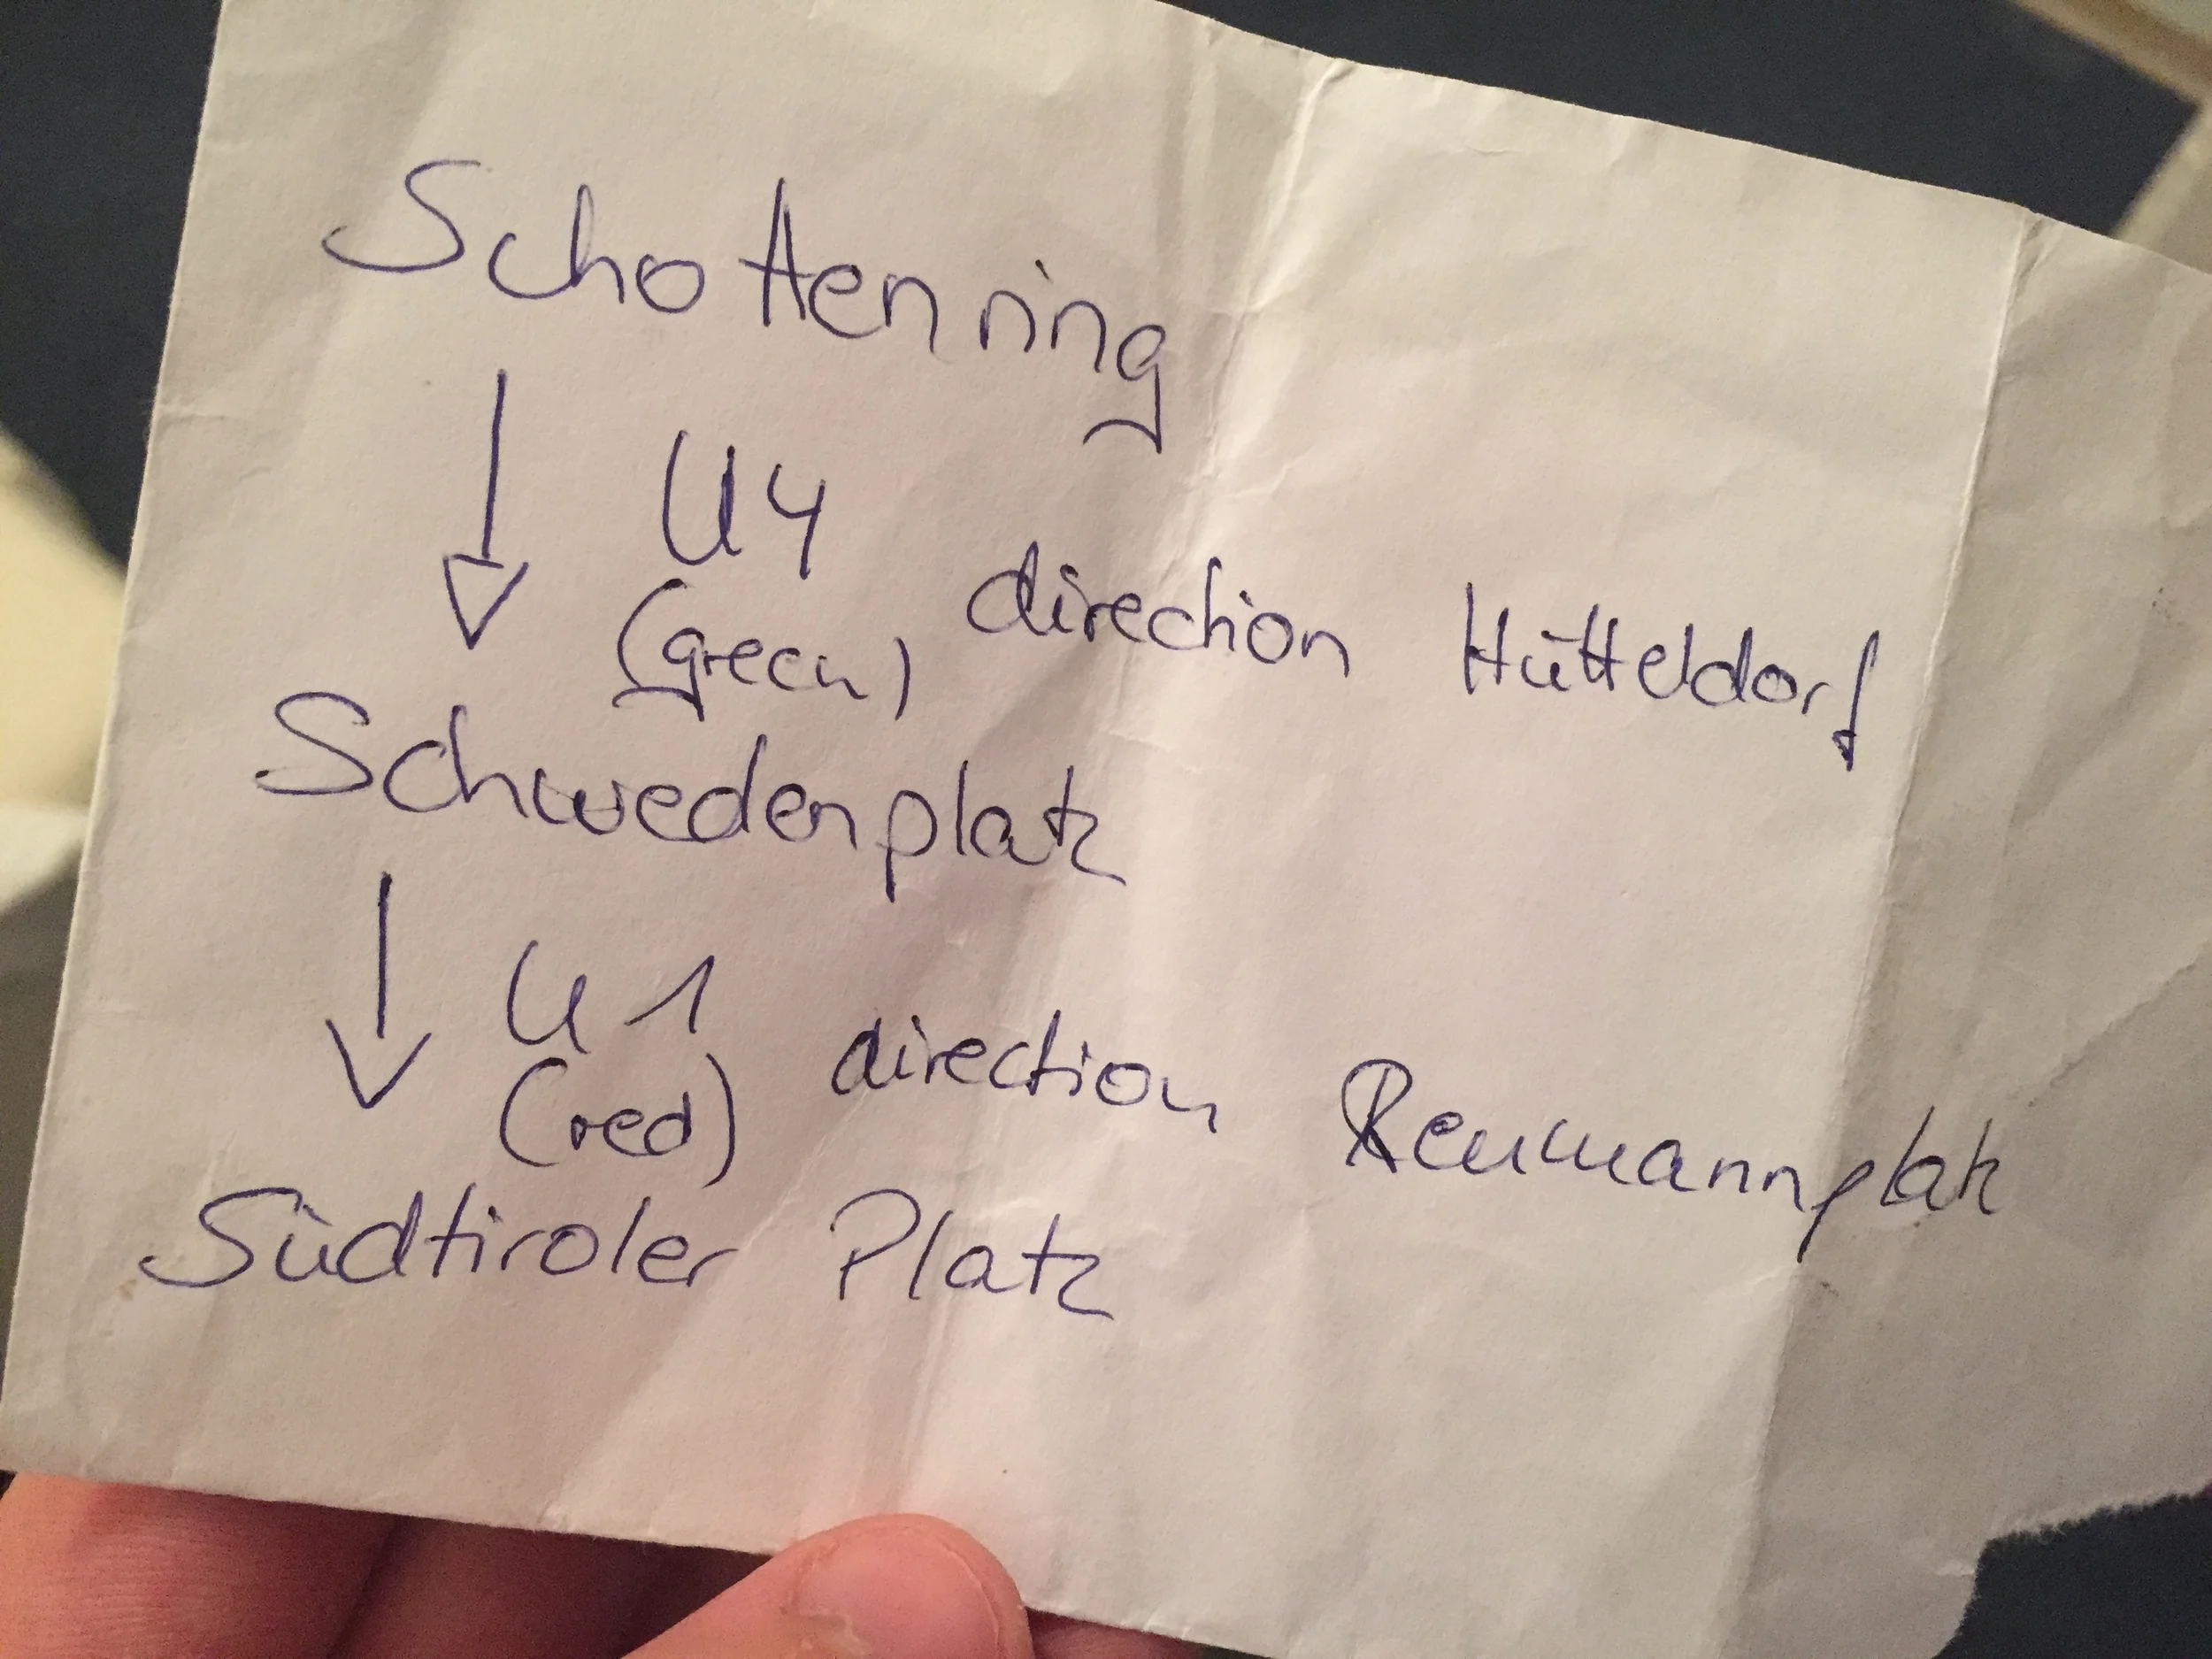 Schottenring
U4
(green) direction Hütteldorf
Schwedenplatz
U1
(red) direction Reumannplatz
Südtiroler Platz